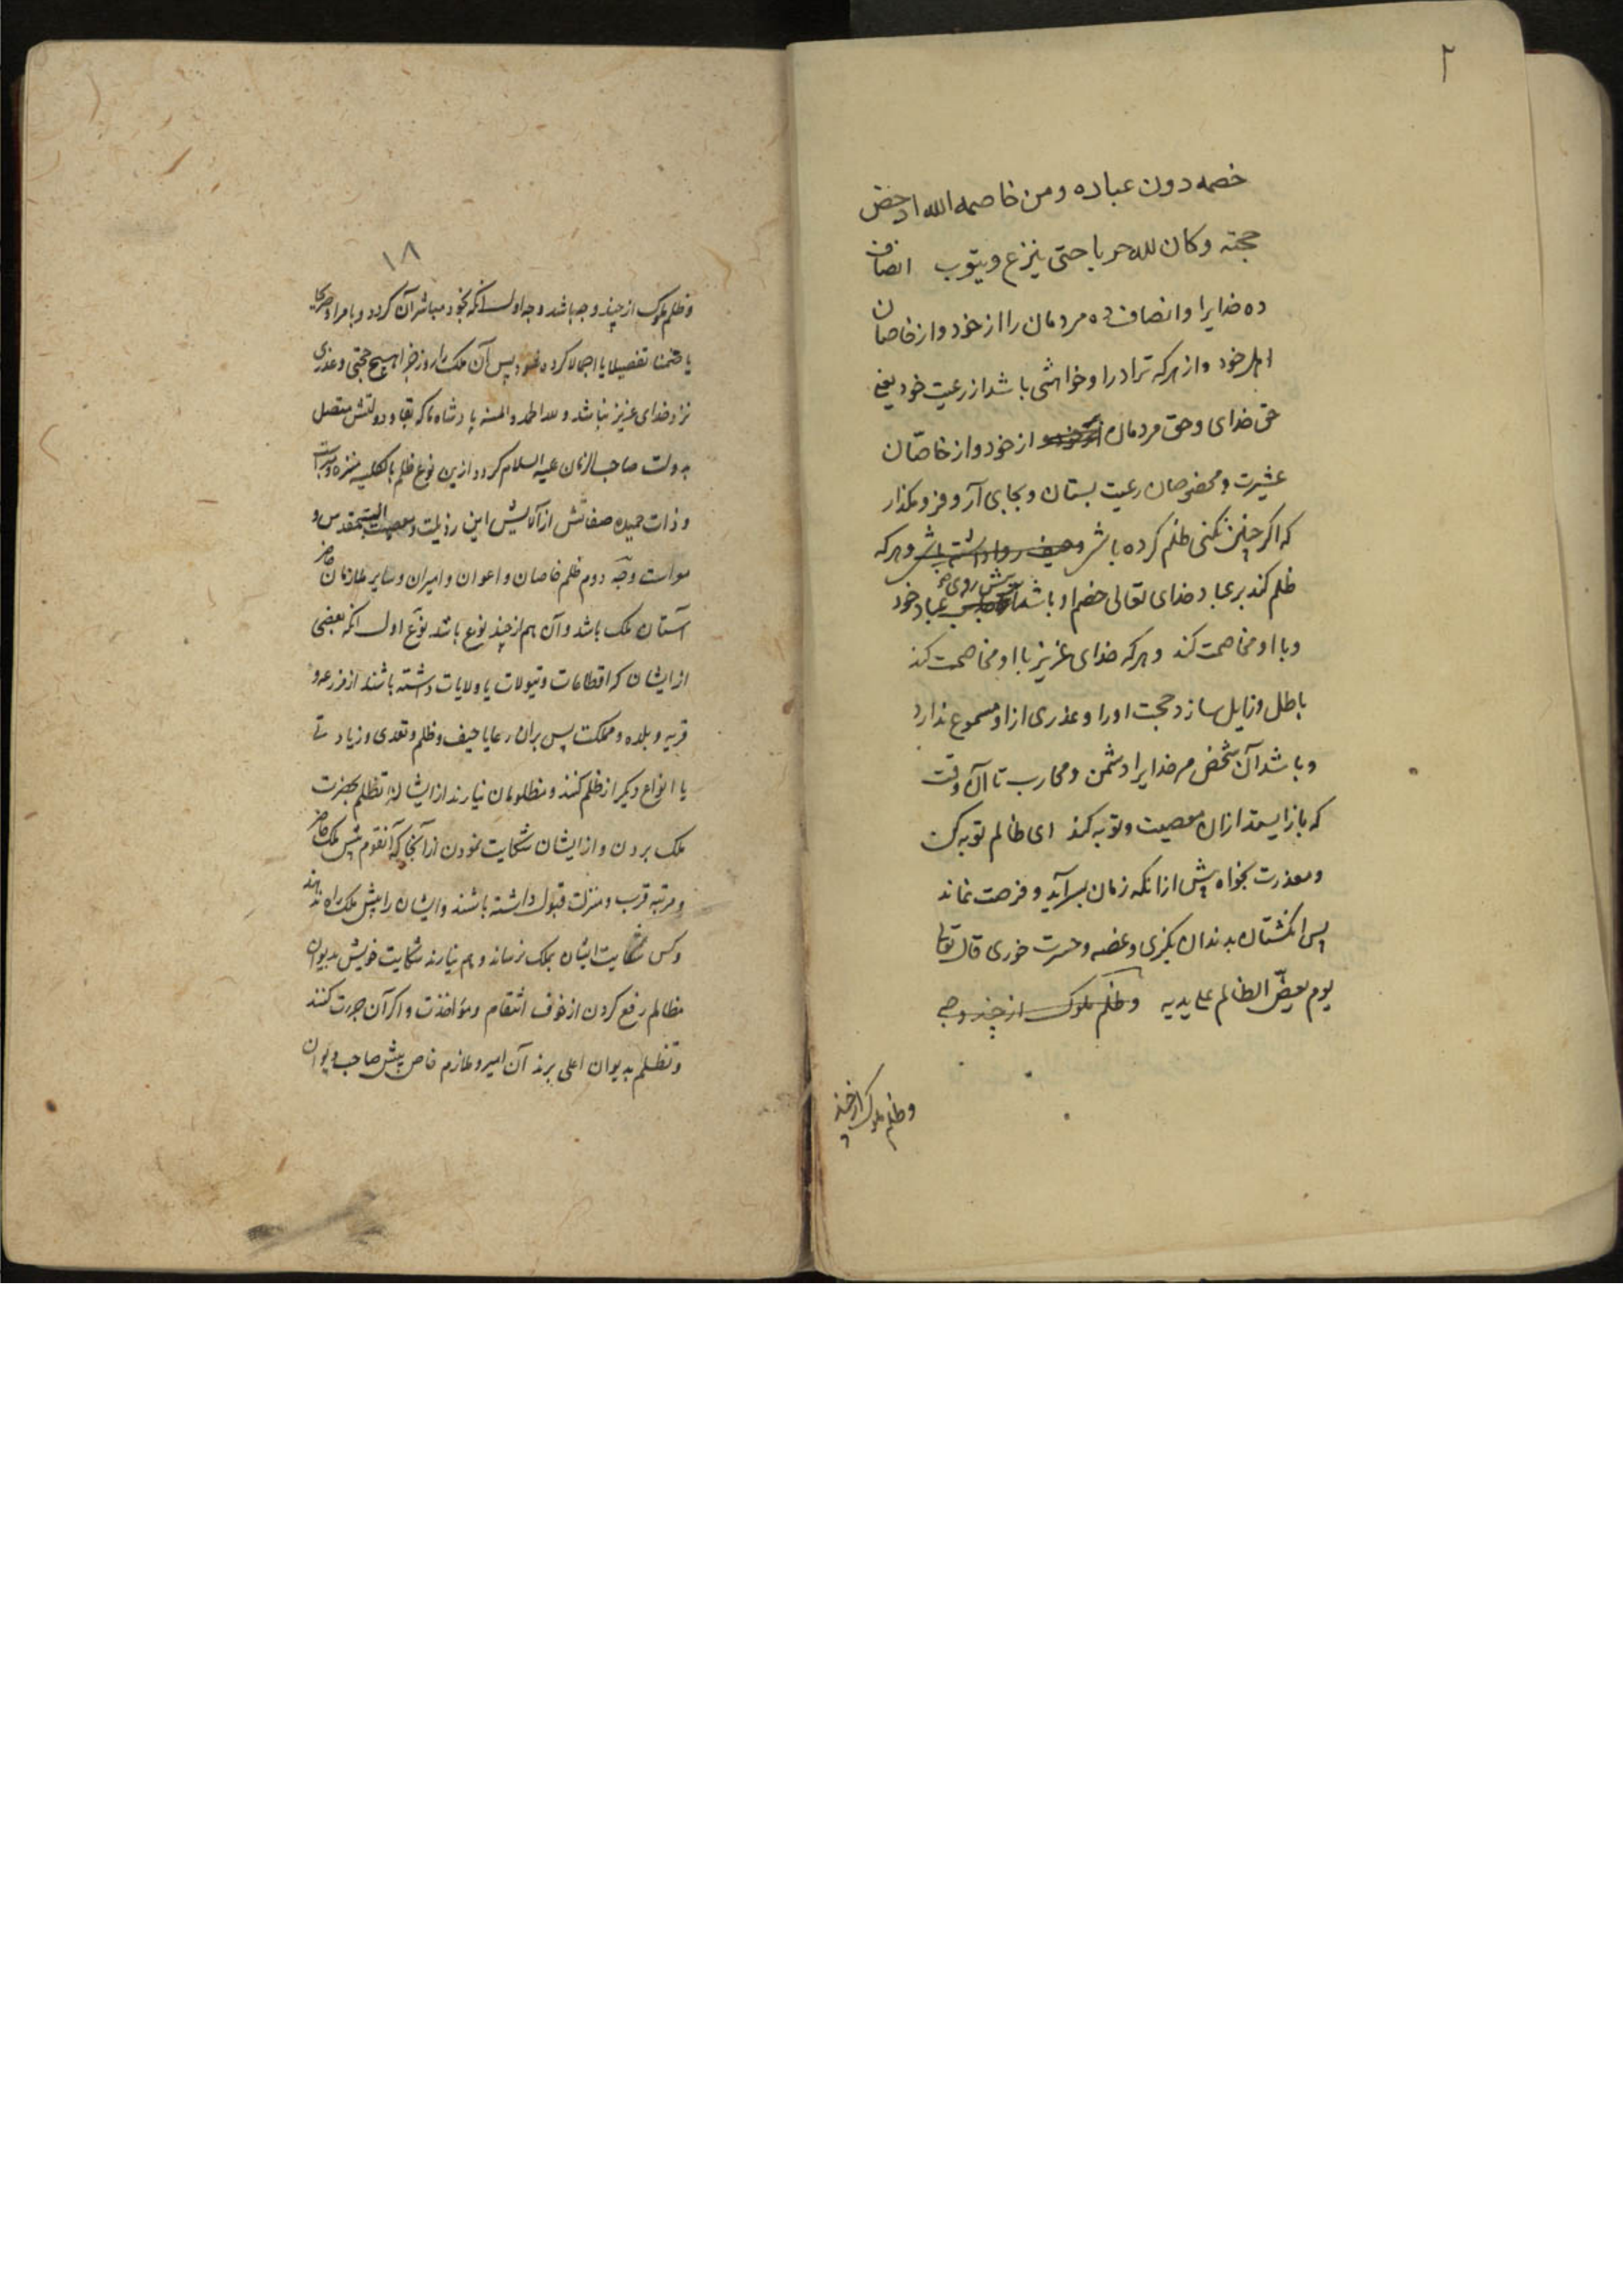 ٢
خصمه دون عباده ومن خاصمه الله ادحض
حجته وكان لله حربا حتى ينزع ويتوب انصاف
ده خدايرا وانصاف ده مردمان را از خود واز خاصان
اهل خود واز هركه ترا درا وخواهشى باشد از رعيت خود يعنى
حق خداى وحق مردمان از خود واز خاصّان
عشيرت ومخصوصان رعيت بستان وبجاى آر وفرو مگذار
كه اگر چنين نكنى ظلم كرده باشى وحيف روا داشته باشى وهركه
ظلم كند بر عباد خداى تعالى خصم او باشد پيش روى عباد خود
وبا او مخاصمت كند وهركه خداى عزيز با او مخاصمت كند
باطل وزايل سازد حجت اورا وعذرى از او مسموع ندارد
وباشد آن شخص مر خدايرا دشمن ومحارب تا آن وقت
كه باز ايستد ازان معصيت وتوبه كند اى ظالم توبه كن
ومعذرت بخواه پيش ازانكه زمان بسر آيد وفرصت نماند
پس انگشتان بدندان بگزى وغصه وحسرت خورى قال تعالى
يوم يعضّ الظالم على يديه وظلم ملوك از چند وجهى
وظلم ملوك از چند
١٨
وظلم ملوك از چند وجه باشد وجه اول انكه بخود مباشر آن گردد وبامر او صريحا
يا ضمنا تفصيلا يا اجمالا كرده شود پس آن ملك را روز جزا هيچ حجتى وعذرى
نزد خداى عزيز نباشد ولله الحمد والمنه پادشاه ما كه بقاء دولتش متصل
بدولت صاحب الزمان عليه السلام گردد ازين نوع ظلم بالكليه منزه ومبراست
وذات حميده صفاتش از آلايش اين رذيلت ومعصيت البته مقدس و
معراست وجه دوم ظلم خاصان واعوان واميران وساير ملازمان خاص
آستان ملك باشد وآن هم از چند نوع باشد نوع اول انكه بعضى
از ايشان كه اقطاعات وتيولات يا ولايات داشته باشند از مزرعه و
قريه وبلده ومملكت پس بران رعايا حيف وظلم وتعدى وزيادتى
يا انواع ديگر از ظلم كنند ومظلومان نيارند از ايشان تظلم بحضرت
ملك بردن واز ايشان شكايت نمودن از آنجا كه آنقوم پيش ملك خاص
ومرتبه قرب ومنزلت قبول داشته باشند وايشان را پيش ملك راه ندهند
وكس شكايت ايشان بملك نرساند وهم نيارند شكايت خويش بديوان
مظالم رفع كردن از خوف انتقام ومؤاخذت واگر آن جرئت كنند
وتظلم بديوان اعلى برند آن امير وملازم خاص پيش صاحب ديوان